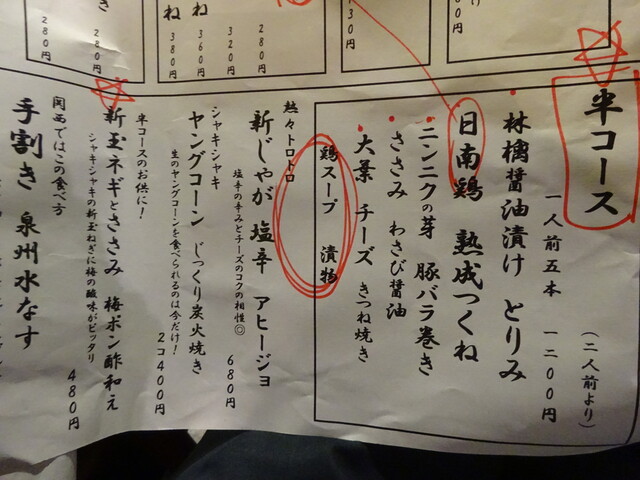 き
280円
280円
ね
380円
ね
360円
320円
280円
30円
00円
半コース
(二人前より)
一人前五本 一二00円
林檎醤油漬け とりみ
日南鶏 熟成つくね
ニンニクの芽 豚バラ巻き
ささみ わさび醤油
大葉 チーズ きつね焼き
鶏スープ 漬物
熱々トロトロ
新じゃが 塩辛 アヒージョ
塩辛の辛みとチーズのコクの相性◎
680円
シャキシャキ
ヤングコーン じっくり炭火焼き
生のヤングコーンを食べられるのは今だけ!
2コ400円
半コースのお供に!
新玉ネギとささみ 梅ポン酢和え
シャキシャキの新玉ねぎに梅の酸味がピッタリ
480円
関西ではこの食べ方
手割き 泉州水なす